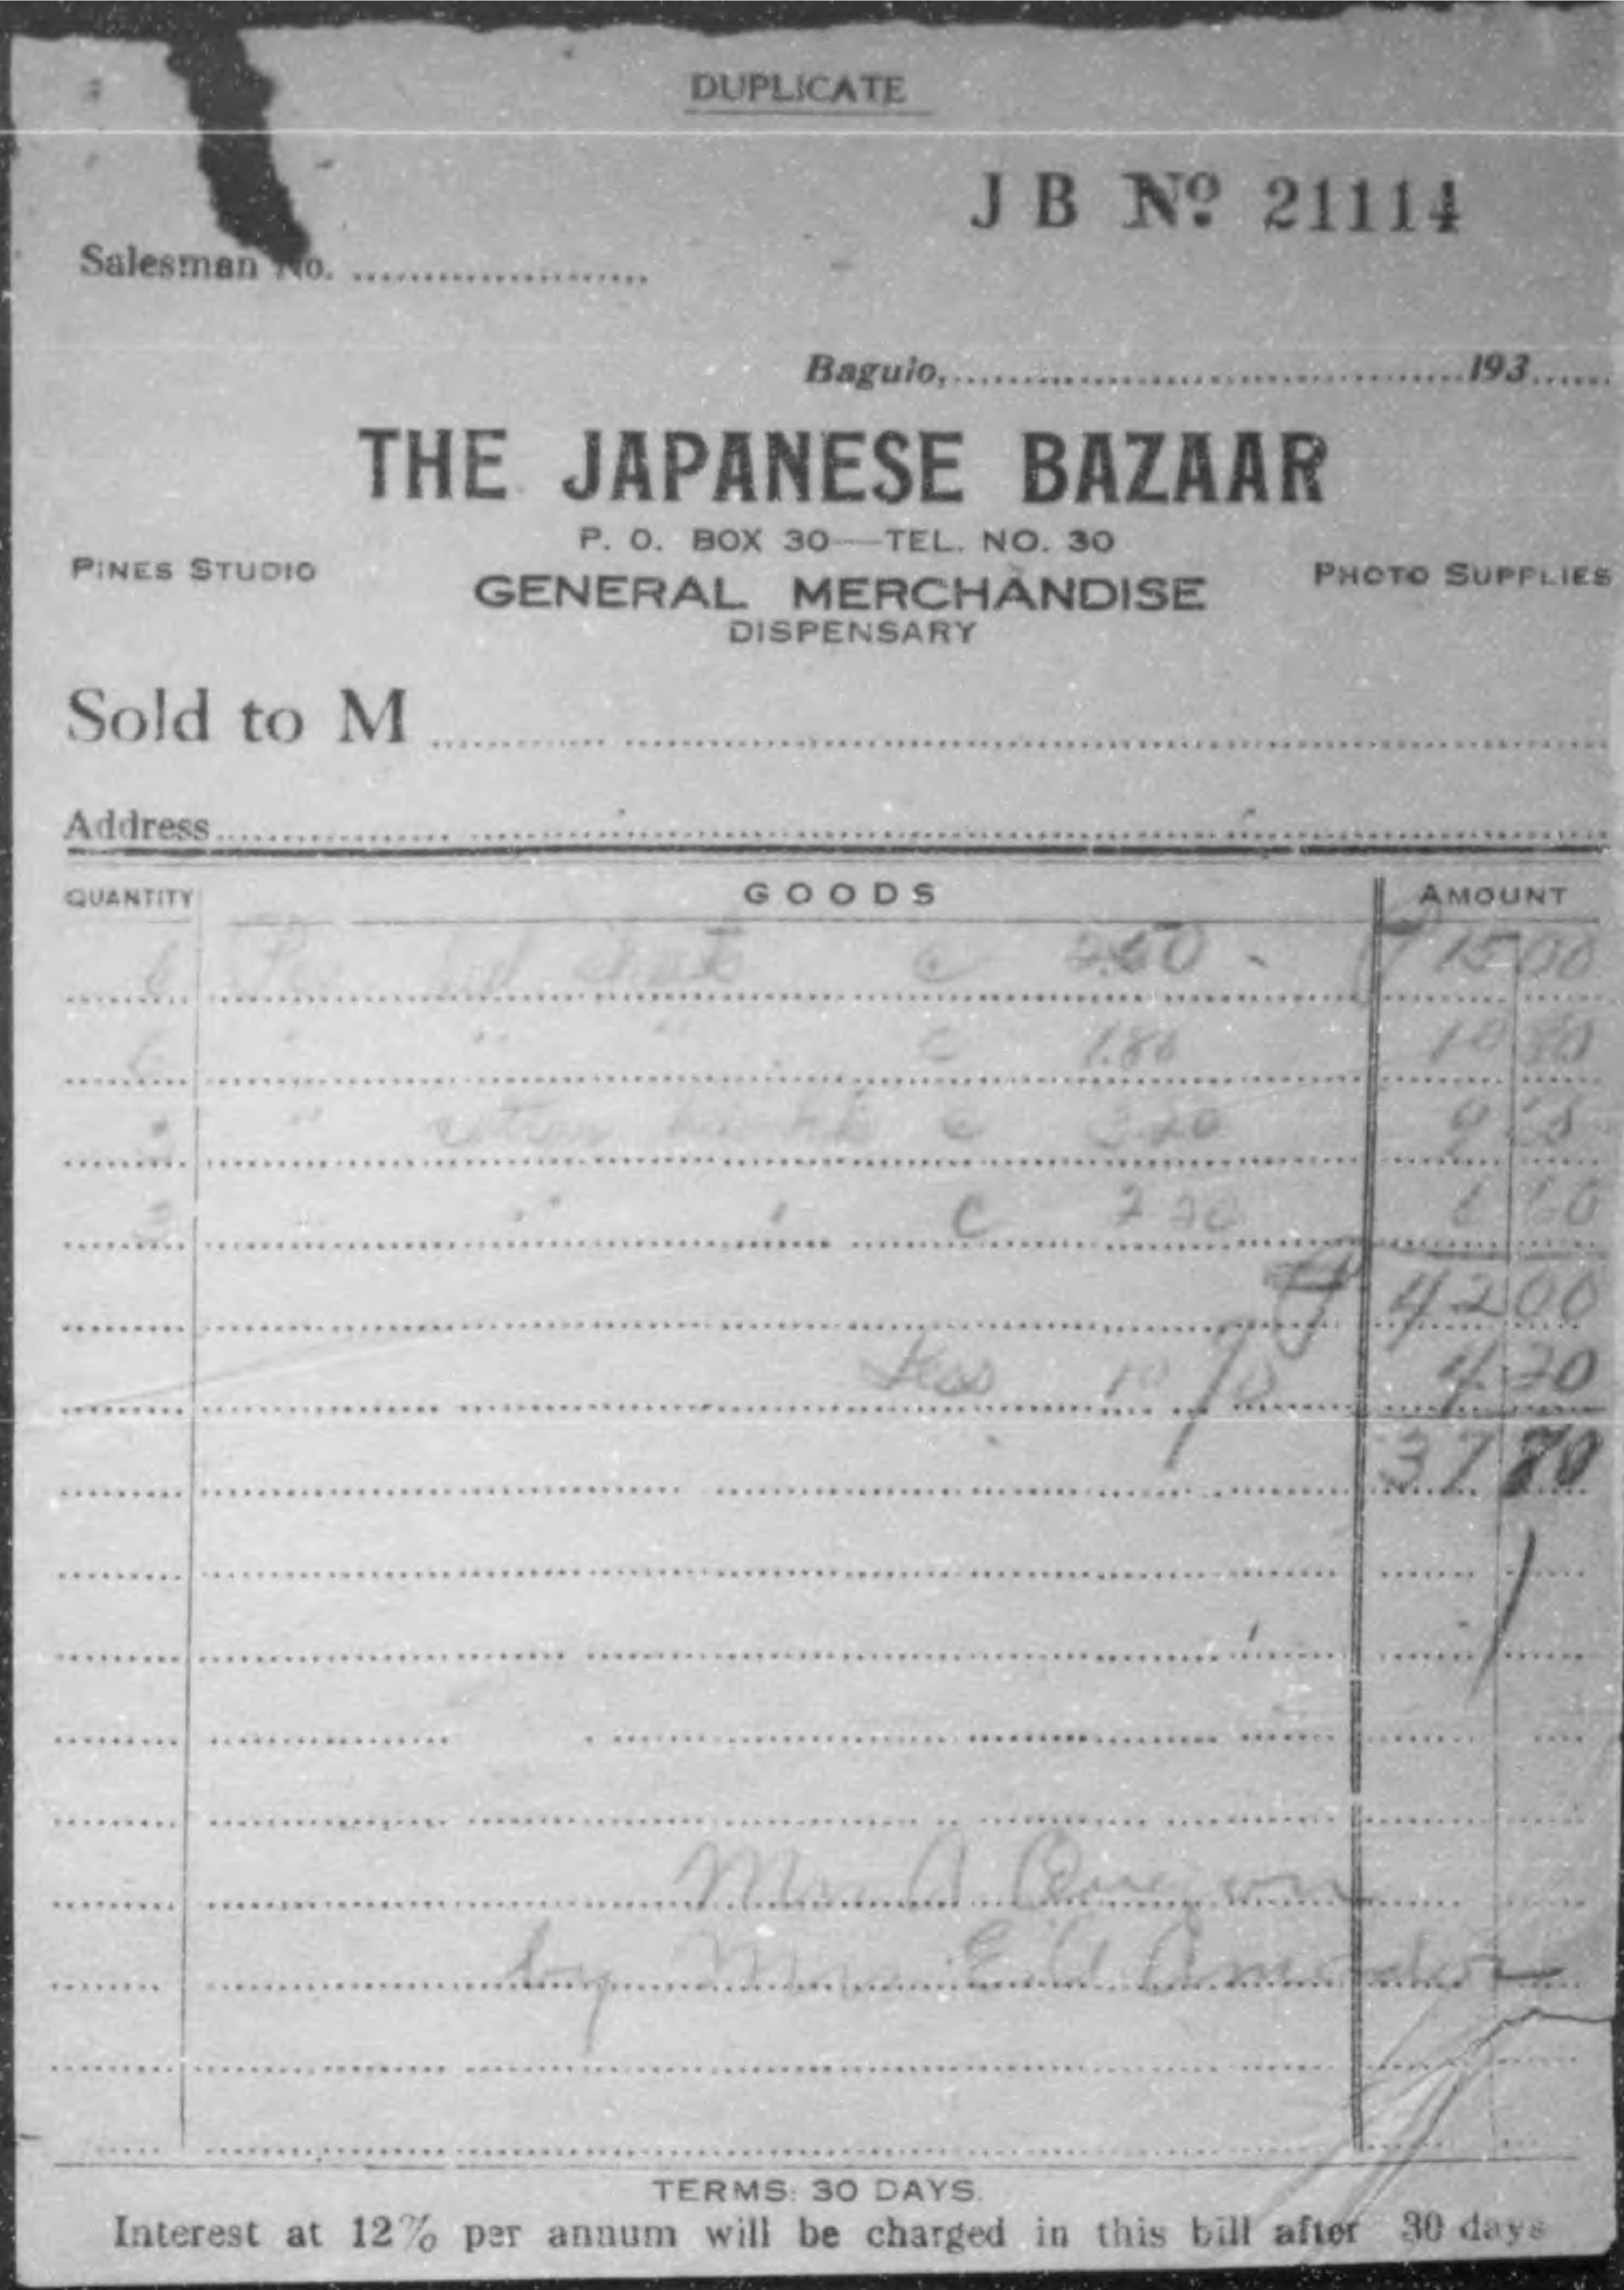 DUPLICATE
J B No 21114
Salesman No.
Baguio, 193
THE JAPANESE BAZAAR
P. O. BOX 30—TEL. NO. 30
PINES STUDIO
GENERAL MERCHANDISE
PHOTO SUPPLIES
DISPENSARY
Sold to M
Address
QUANTITY GOODS AMOUNT
6 @ 2.50 15 00
6 " " " @ 1.80 10 80
3 " @ 3.20 9 60
3 " " @ 2.20 6 60
₱ 42 00
Less 10 % 4.20
37 80
by Mrs.
TERMS: 30 DAYS.
Interest at 12% per annum will be charged in this bill after 30 days